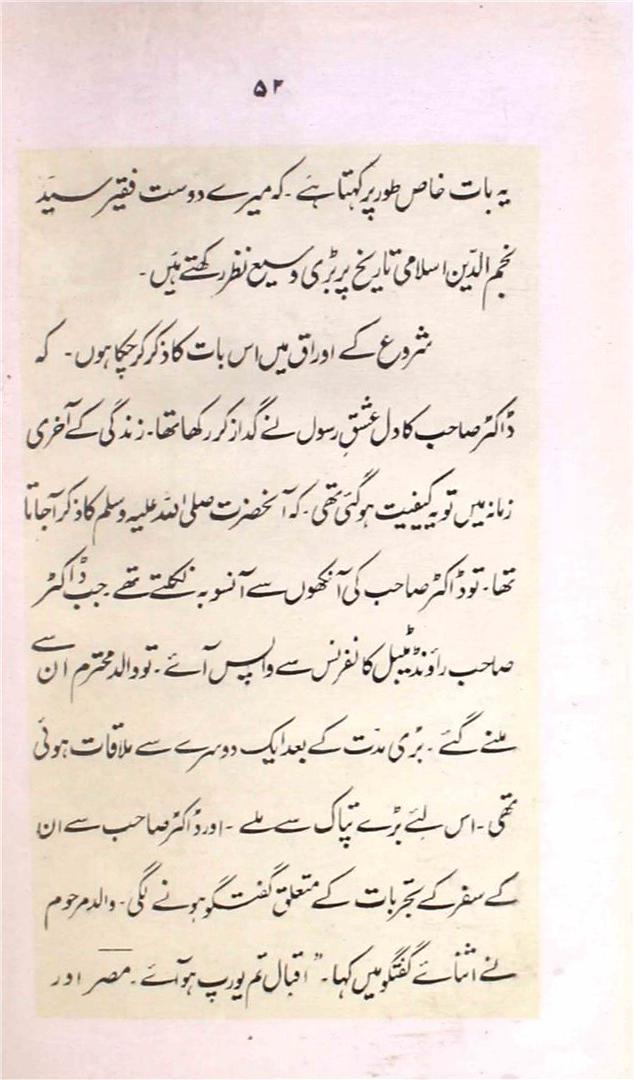 ۵۲
یہ بات خاص طور پر کہتا ہے۔ کہ میرے دوست فقیر سیّد
نجم الدّین اسلامی تاریخ پر بڑی وسیع نظر رکھتے ہیں۔
شروع کے اوراق میں اس بات کا ذکر کر چکا ہوں۔ کہ
ڈاکٹر صاحب کا دل عشقِ رسول نے گداز کر رکھا تھا۔ زندگی کے آخری
زمانہ میں تو یہ کیفیت ہو گئی تھی۔ کہ آنحضرت صلی اللہ علیہ وسلم کا ذکر آجاتا
تھا۔ تو ڈاکٹر صاحب کی آنکھوں سے آنسو بہ نکلتے تھے۔ جب ڈاکٹر
صاحب راؤنڈ ٹیبل کانفرنس سے واپس آئے۔ تو والد محترم ان سے
ملنے گئے۔ بڑی مدّت کے بعد ایک دوسرے سے ملاقات ہوئی
تھی۔ اس لئے بڑے تپاک سے ملے۔ اور ڈاکٹر صاحب سے ان
کے سفر کے تجربات کے متعلق گفتگو ہونے لگی۔ والد مرحوم
نے اثنائے گفتگو میں کہا۔ "اقبال تم یورپ ہو آئے۔ مصر اور